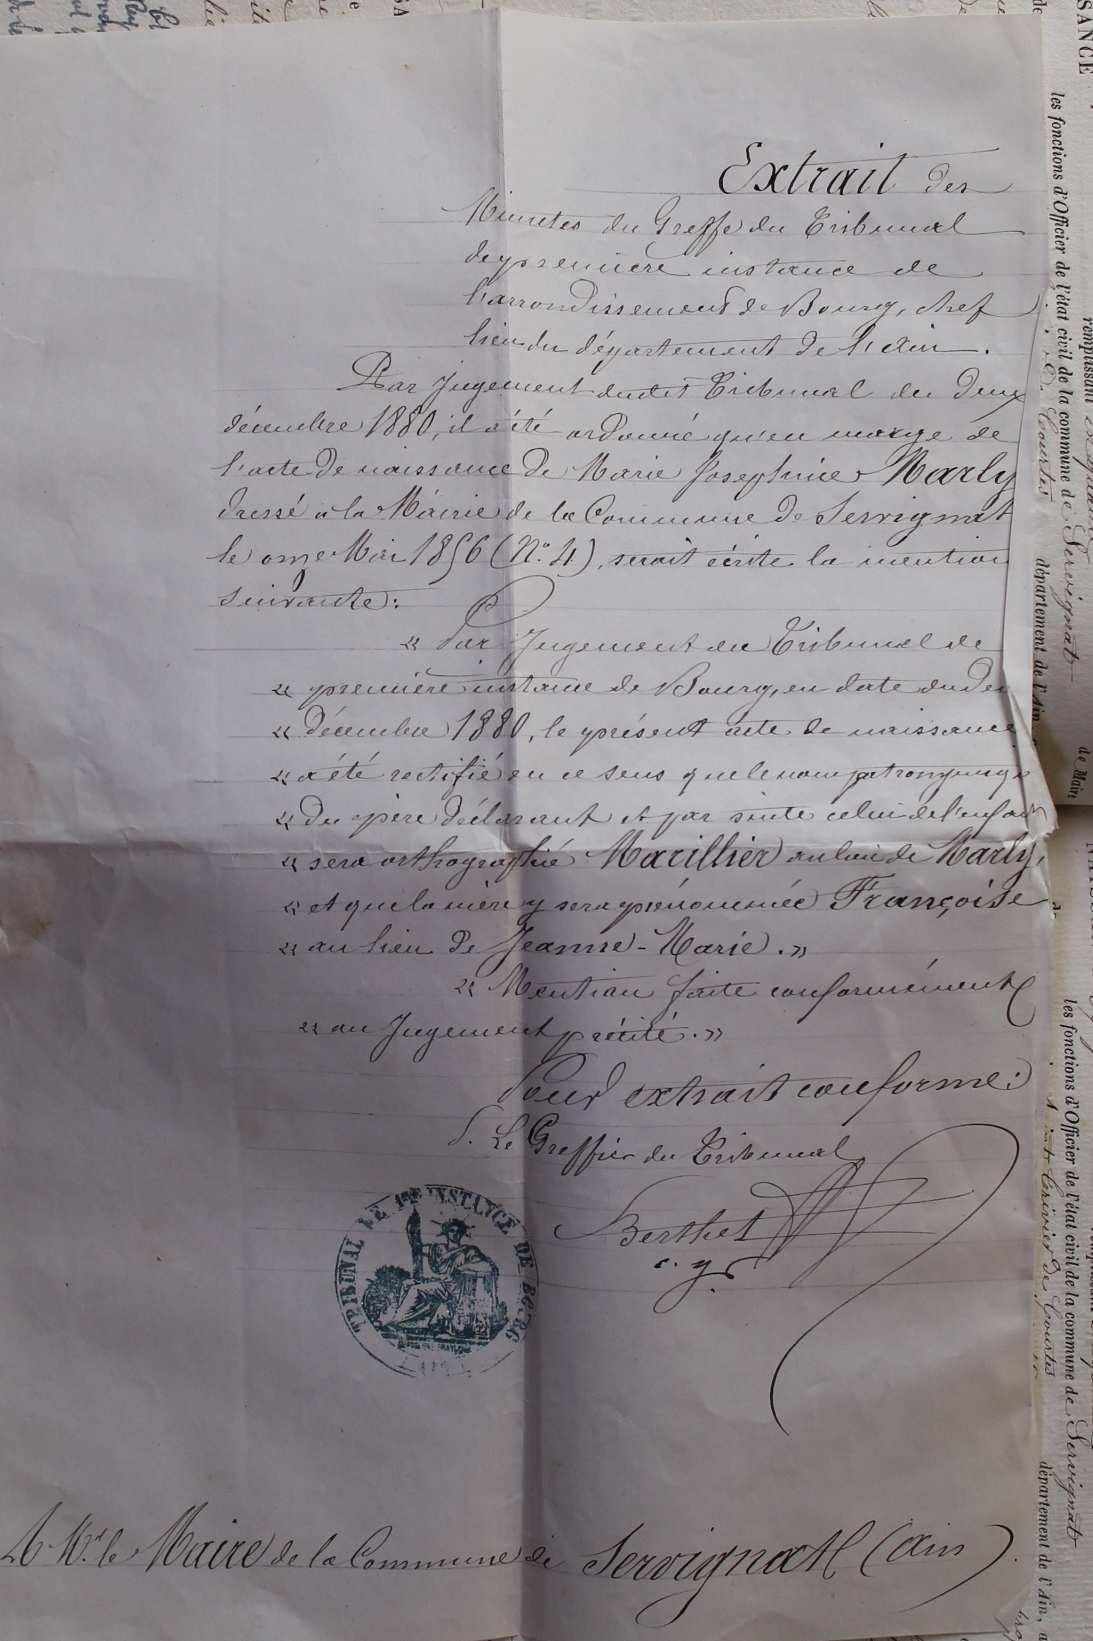 Extrait des
Minutes du Greffe du Tribunal
de première instance de
l'arrondissement de Bourg, chef
lieu du département de l'Ain.
Par Jugement dudit Tribunal du deux
décembre 1880, il a été ordonné qu'en marge de
l'acte de naissance de Marie Josephine Marly
dressé à la Mairie de la Commune de Servignat
le onze Mai 1856 (N° 4), serait écrite la mention
suivante:
« Par Jugement du Tribunal de
« première instance de Bourg, en date du deux
« décembre 1880, le présent acte de naissance
« a été rectifié en ce sens que le nom patronymique
« du père déclarant et par suite celui de l'enfant
« sera orthographié Marillier au lieu de Marly,
« et que la mère y sera prénommée Françoise
« au lieu de Jeanne-Marie.»
« Mention faite conformément
« au Jugement précité.»
Pour extrait conforme:
P. Le Greffier du Tribunal
Berthet
c. g.
TRIBUNAL DE 1RE INSTANCE DE BOURG
A Mr. le Maire de la Commune de Servignat (Ain)
SANCE
les fonctions d'Officier de l'état civil de la commune de Servignat
département de l'Ain
remplissant
de Maire
de Courtes
les fonctions d'Officier de l'état civil de la commune de Servignat
département de l'Ain,
de Courtes